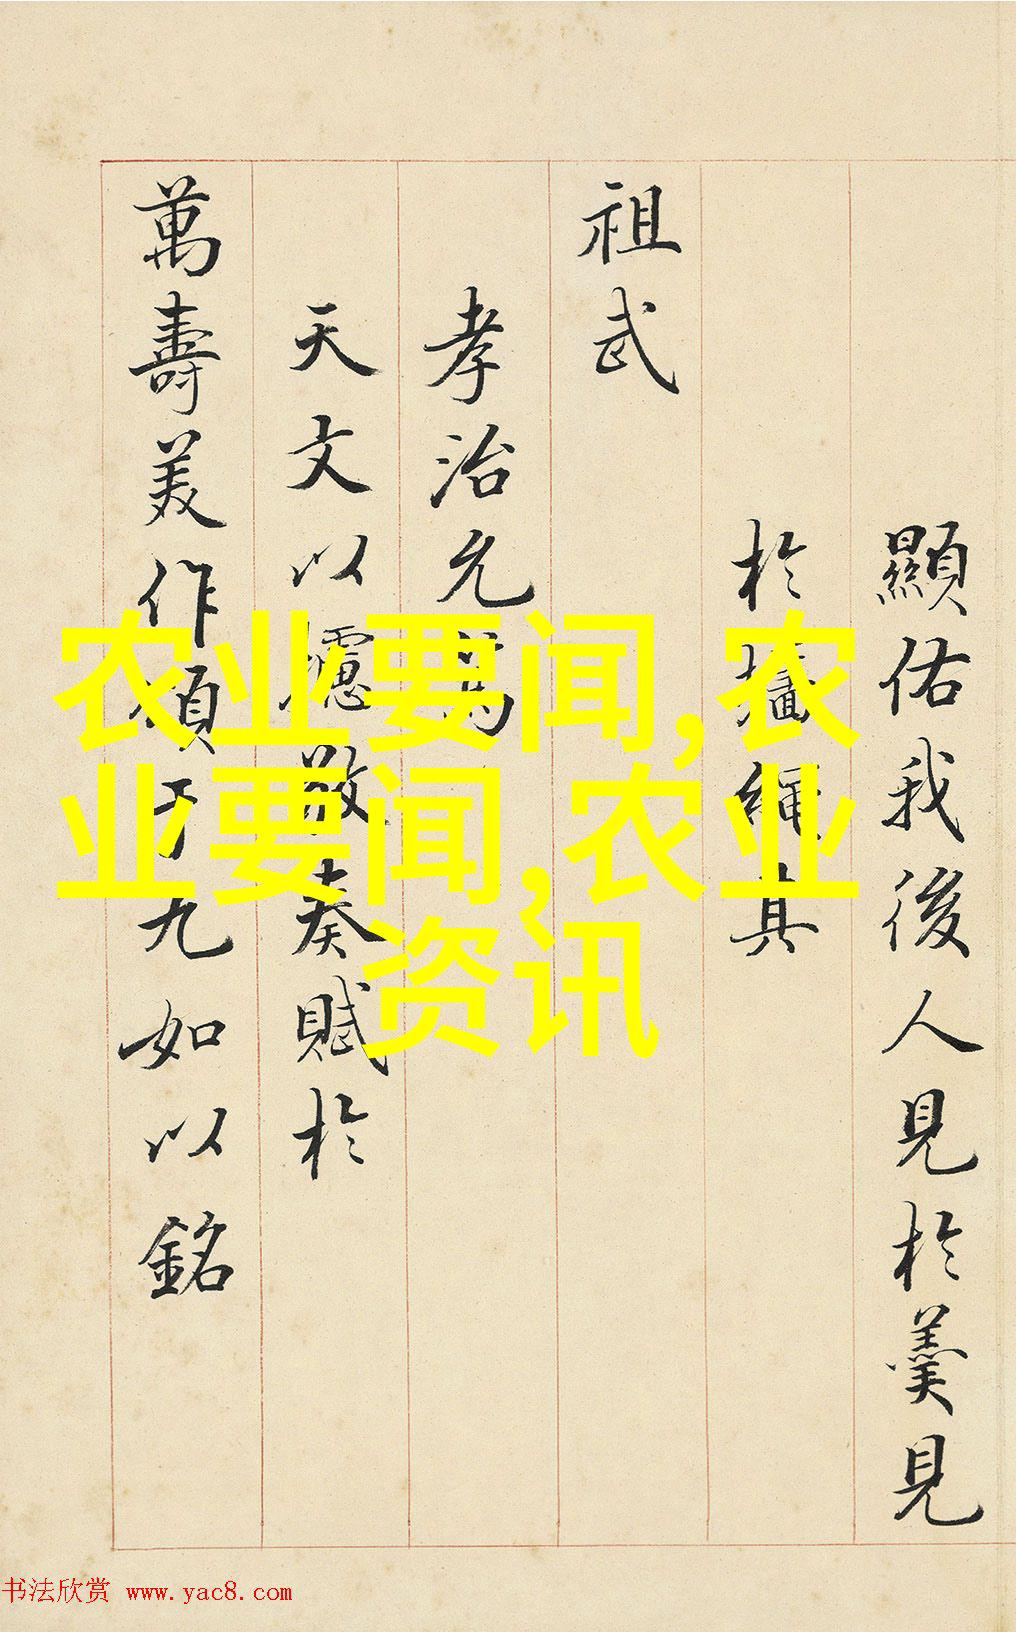 顯佑我後人見於羹見
於牆繩其
祖武
孝治允
天文以攄敬奏賦於
萬壽美作頌于九如以銘
农业要闻,农
业要闻,农业
资讯
书法欣赏 www.yac8.com